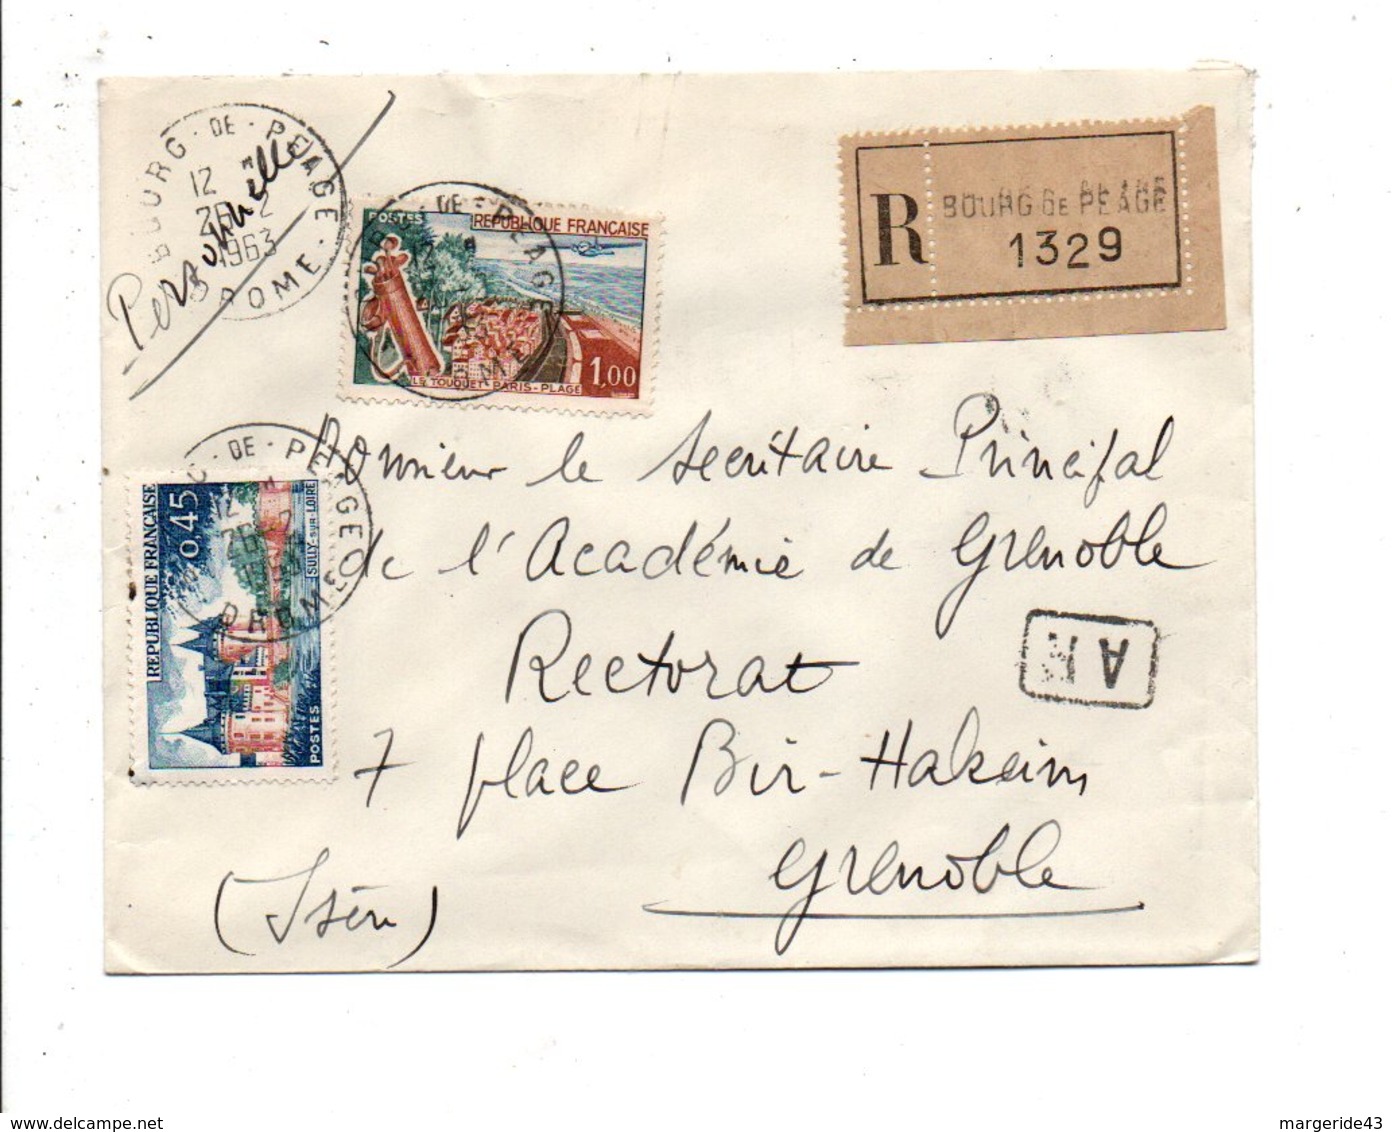 BOURG - DE - PEAGE
12 H
26 - 2
1963
DROME
Personnelle
POSTES
REPUBLIQUE FRANÇAISE
LE TOUQUET - PARIS - PLAGE
1,00
DE - PEAGE
R
BOURG DE PEAGE
1329
REPUBLIQUE FRANÇAISE
0,45
SULLY-SUR-LOIRE
POSTES
DE - PEAGE
12 H
26 - 2
DROME
Monsieur le Secrétaire Principal
de l'Académie de Grenoble
Rectorat
7 place Bir-Hakeim
Grenoble
(Isère)
AR
www.delcampe.net
margeride43